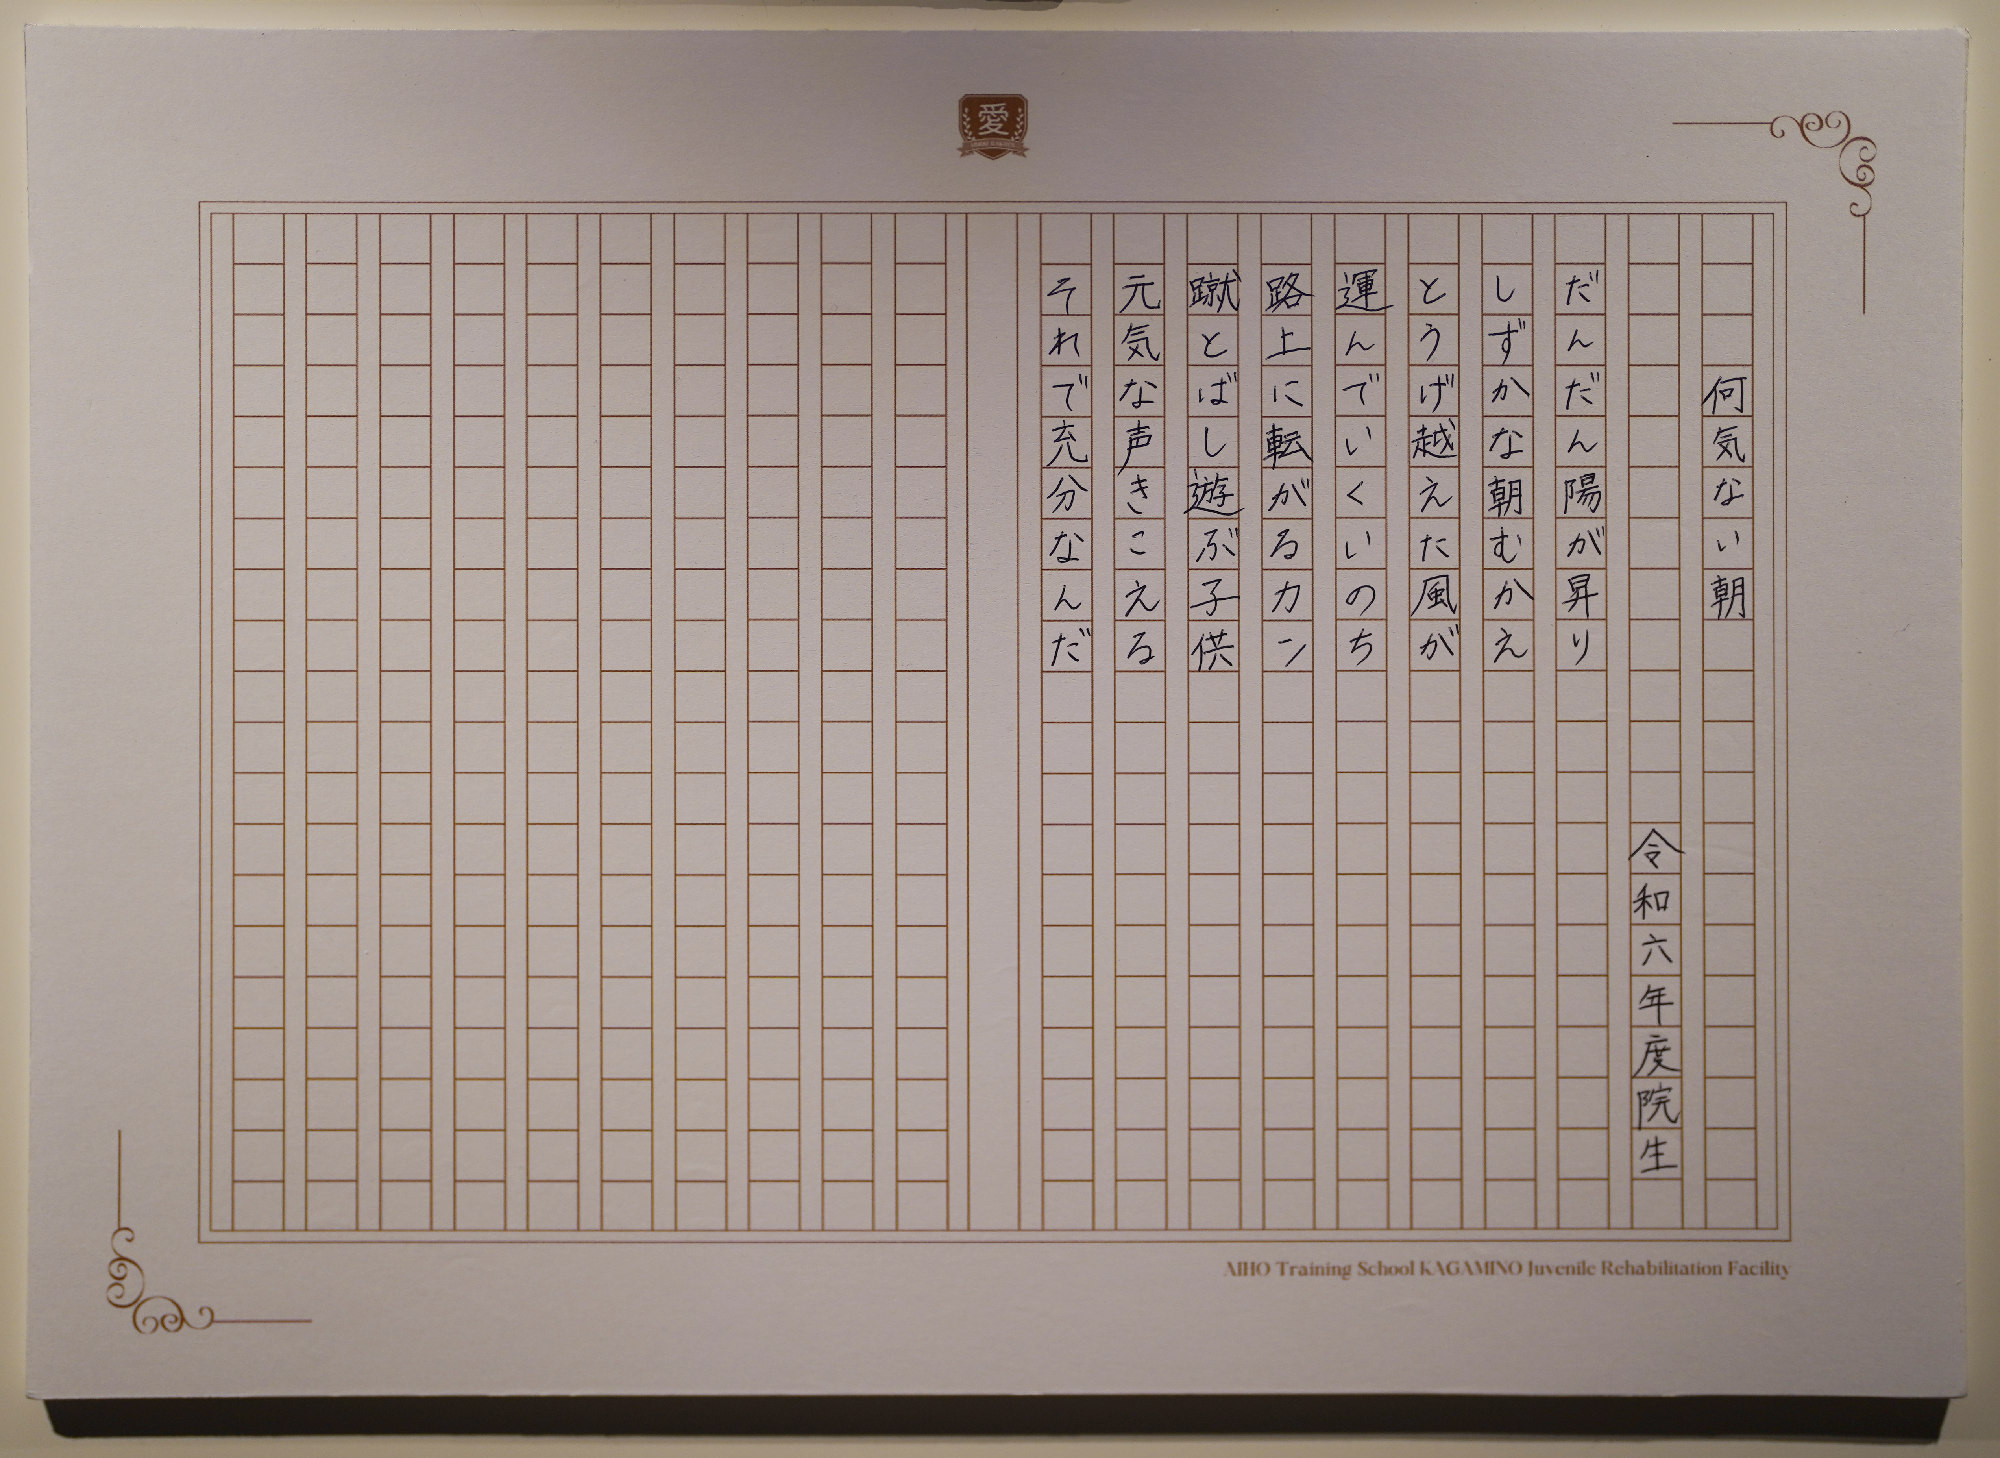 愛
何気ない朝
令和六年度院生
だんだん陽が昇り
しずかな朝むかえ
とうげ越えた風が
運んでいくいのち
路上に転がるカン
蹴とばし遊ぶ子供
元気な声きこえる
それで充分なんだ
AIHO Training School KAGAMINO Juvenile Rehabilitation Facility